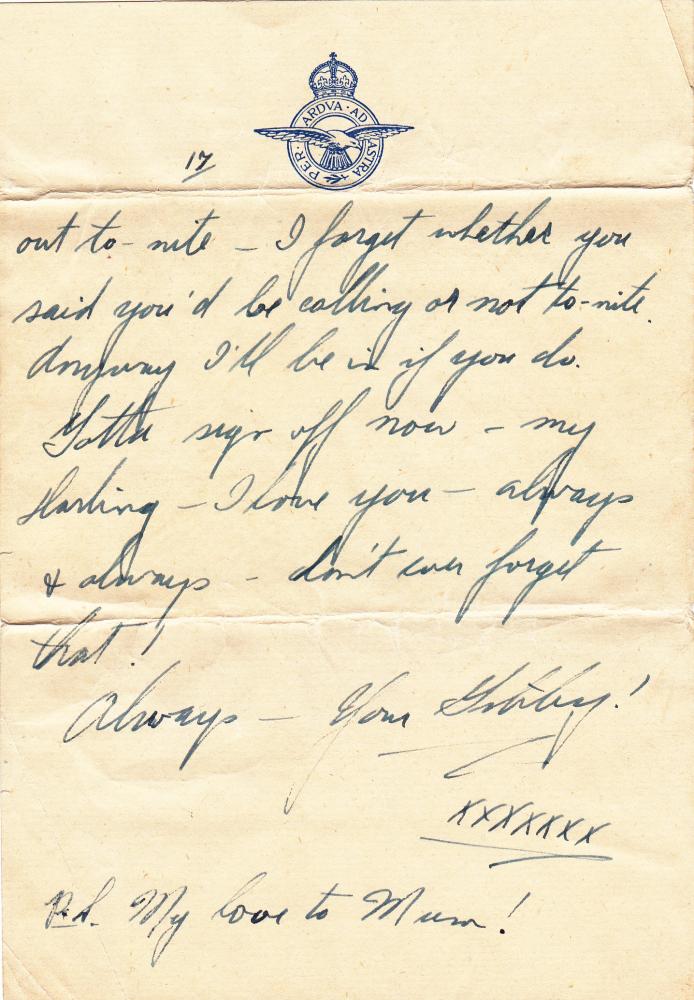 PER · ARDVA · AD ASTRA
17
out to-nite – I forget whether you
said you'd be calling or not to-nite.
Anyway I'll be in if you do.
Gotta sign off now – my
darling – I love you – always
& always – don't ever forget
that!
Always – Your Gibby!
xxxxxxx
P.S. My love to Mum!